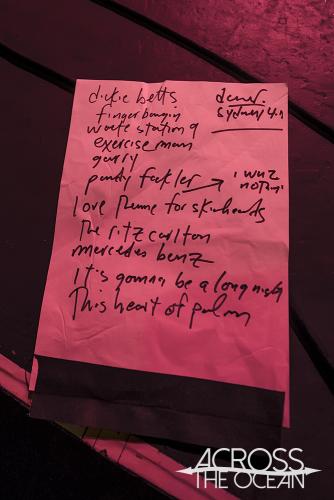 dickie betts
fingerbangin
waste station 9
exercise man
gary
→ i wuz
love theme for skinheads
The ritz carlton
mercedes benz
it's gonna be a long night
This heart of palm
ACROSS
THE OCEAN